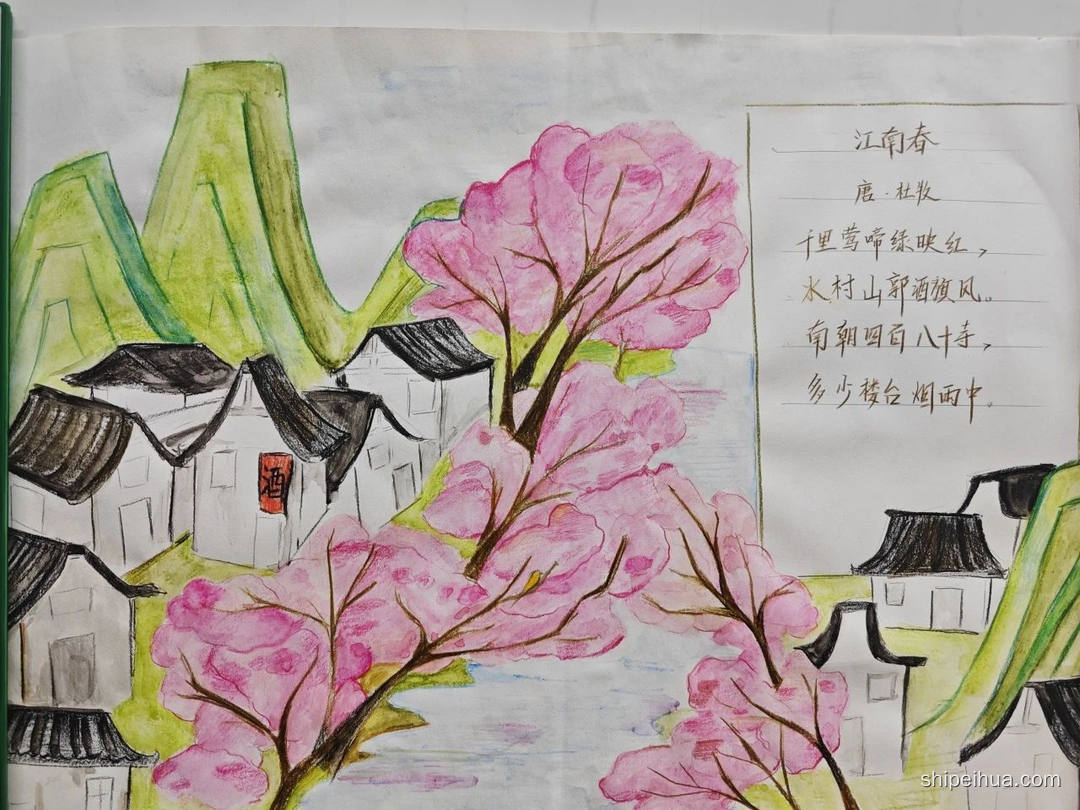 江南春
唐·杜牧
千里莺啼绿映红，
水村山郭酒旗风。
南朝四百八十寺，
多少楼台烟雨中。
酒
shipeihua.com